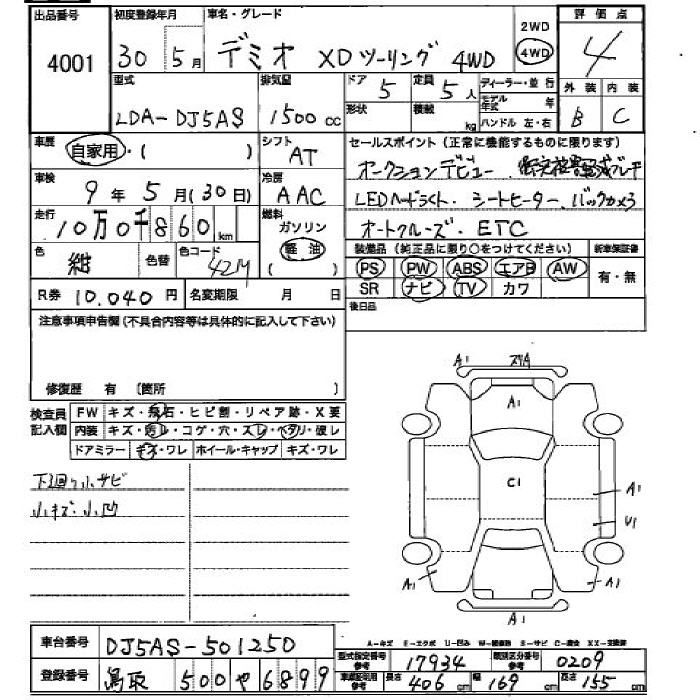 出品番号 初度登録年月 車名・グレード 2WD 評価点
4001 30 5月 デミオ XDツーリング 4WD 4WD 4
型式 排気量 ドア 定員 ディーラー・並行 外装 内装
LDA-DJ5AS 1500cc 5 5人 モデル年式 年 B C
形状 積載 kg ハンドル 左・右
車歴 自家用・( ) シフト AT セールスポイント(正常に機能するものに限ります)
オークションデビュー
車検 9年5月(30日) 冷房 AAC LEDヘッドライト. シートヒーター. バックカメラ
走行 10万0千860km 燃料 ガソリン 軽油 ( ) オートクルーズ. ETC
色 紺 色替 色コード 42M 装備品(純正品に限り○をつけてください) 新車保証書
PS PW ABS エアB AW 有・無
R券 10.040円 名変期限 月 日 SR ナビ TV カワ
注意事項申告欄(不具合内容等は具体的に記入して下さい) 後日品
修復歴 有 (箇所 )
検査員記入欄 FW キズ・飛石・ヒビ割・リペア跡・X要
内装 キズ・汚レ・コゲ・穴・スレ・ヘタリ・破レ
ドアミラー キズ・ワレ ホイール・キャップ キズ・ワレ
下廻り小サビ
小キズ.小凹
A1
A1
C1
A1
U1
A1
A1
A1
A-キズ E-エクボ U-凹み W-補修跡 S-サビ C-腐食 XX-交換済
車台番号 DJ5AS-501250 型式指定番号 参考 17934 類別区分番号 参考 0209
登録番号 鳥取 500 や 6899 車庫証明用 参考 長さ 406cm 幅 169cm 高さ 155cm